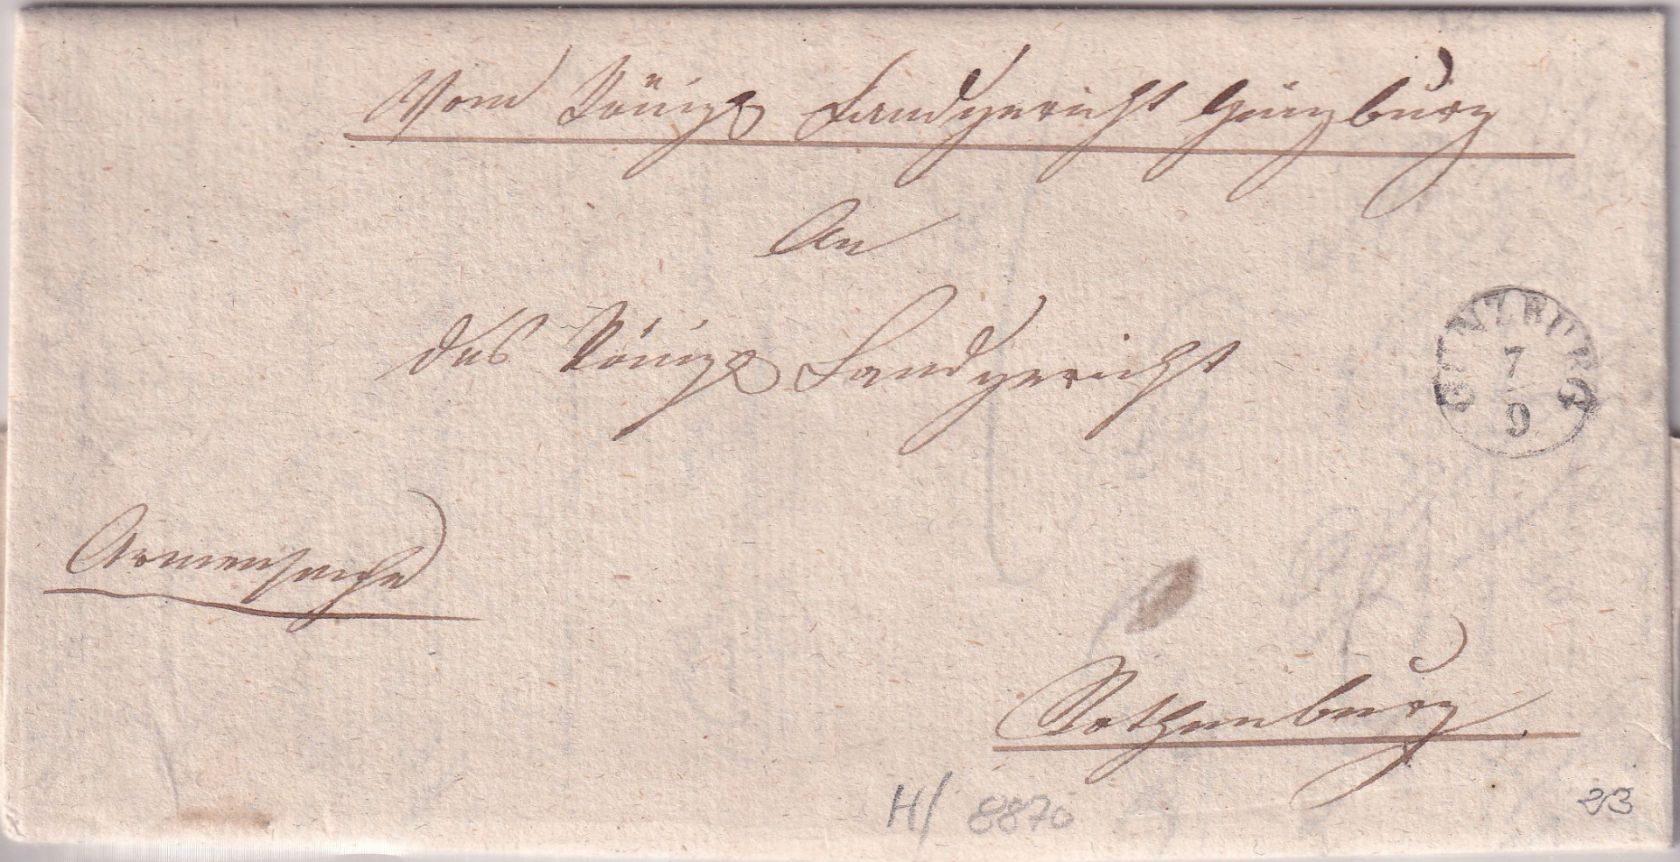 Vom Königl Landgericht Günzburg
An
das Königl Landgericht
GÜNZBURG
7
9
Armensache
Rothenburg.
H/ 8870
23